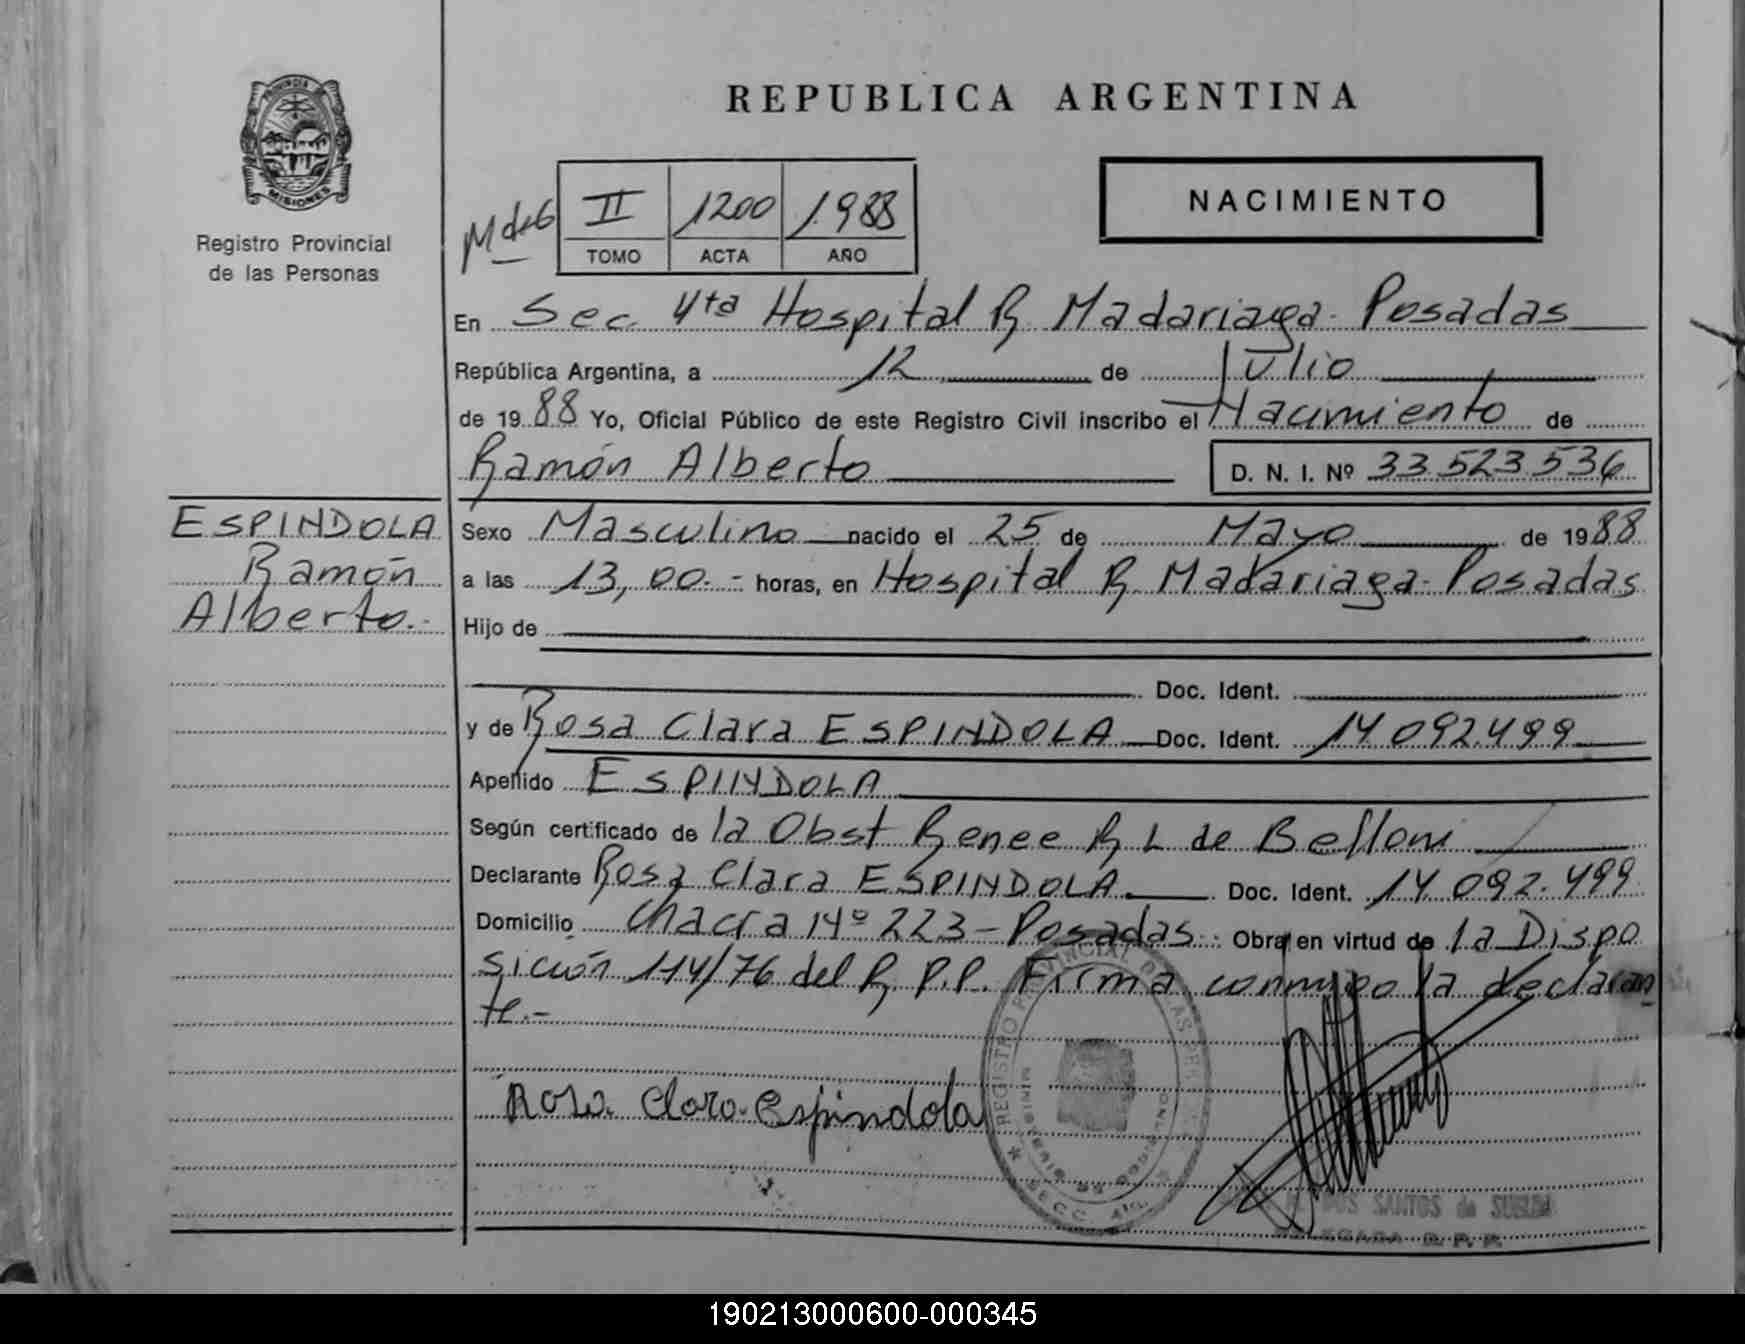 PROVINCIA DE
MISIONES
Registro Provincial
de las Personas
REPUBLICA ARGENTINA
NACIMIENTO
II 1200 1988
TOMO ACTA AÑO
En Sec. 4ta Hospital R. Madariaga - Posadas
República Argentina, a 12 de Julio
de 1988 Yo, Oficial Público de este Registro Civil inscribo el Nacimiento de
Ramón Alberto D. N. I. Nº 33.523.536
ESPINDOLA
Ramón
Alberto.-
Sexo Masculino nacido el 25 de Mayo de 1988
a las 13,00.- horas, en Hospital R. Madariaga - Posadas
Hijo de
Doc. Ident.
y de Rosa Clara ESPINDOLA Doc. Ident. 14.092.499
Apellido ESPINDOLA
Según certificado de la Obst Renee R L de Belloni
Declarante Rosa Clara ESPINDOLA Doc. Ident. 14.092.499
Domicilio Chacra Nº 223 - Posadas. Obra en virtud de la Dispo
sición 114/76 del R.P.P. Firma conmigo la declaran
te.-
Rosa Clara Espindola
REGISTRO PROVINCIAL DE LAS PER
SECC. 4ta
DOS SANTOS de
R. P. P.
190213000600-000345